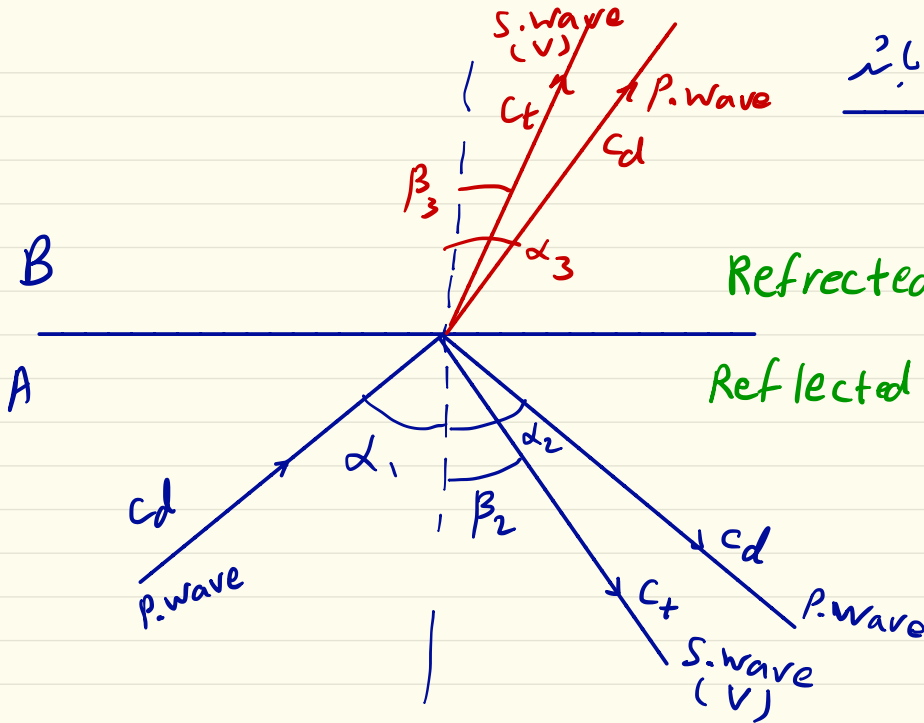 S.wave
(V)
P.wave
Ct
Cd
β3
α3
B
A
Reflected
α1
α2
β2
Cd
P.wave
Cd
Ct
P.wave
S.wave
(V)